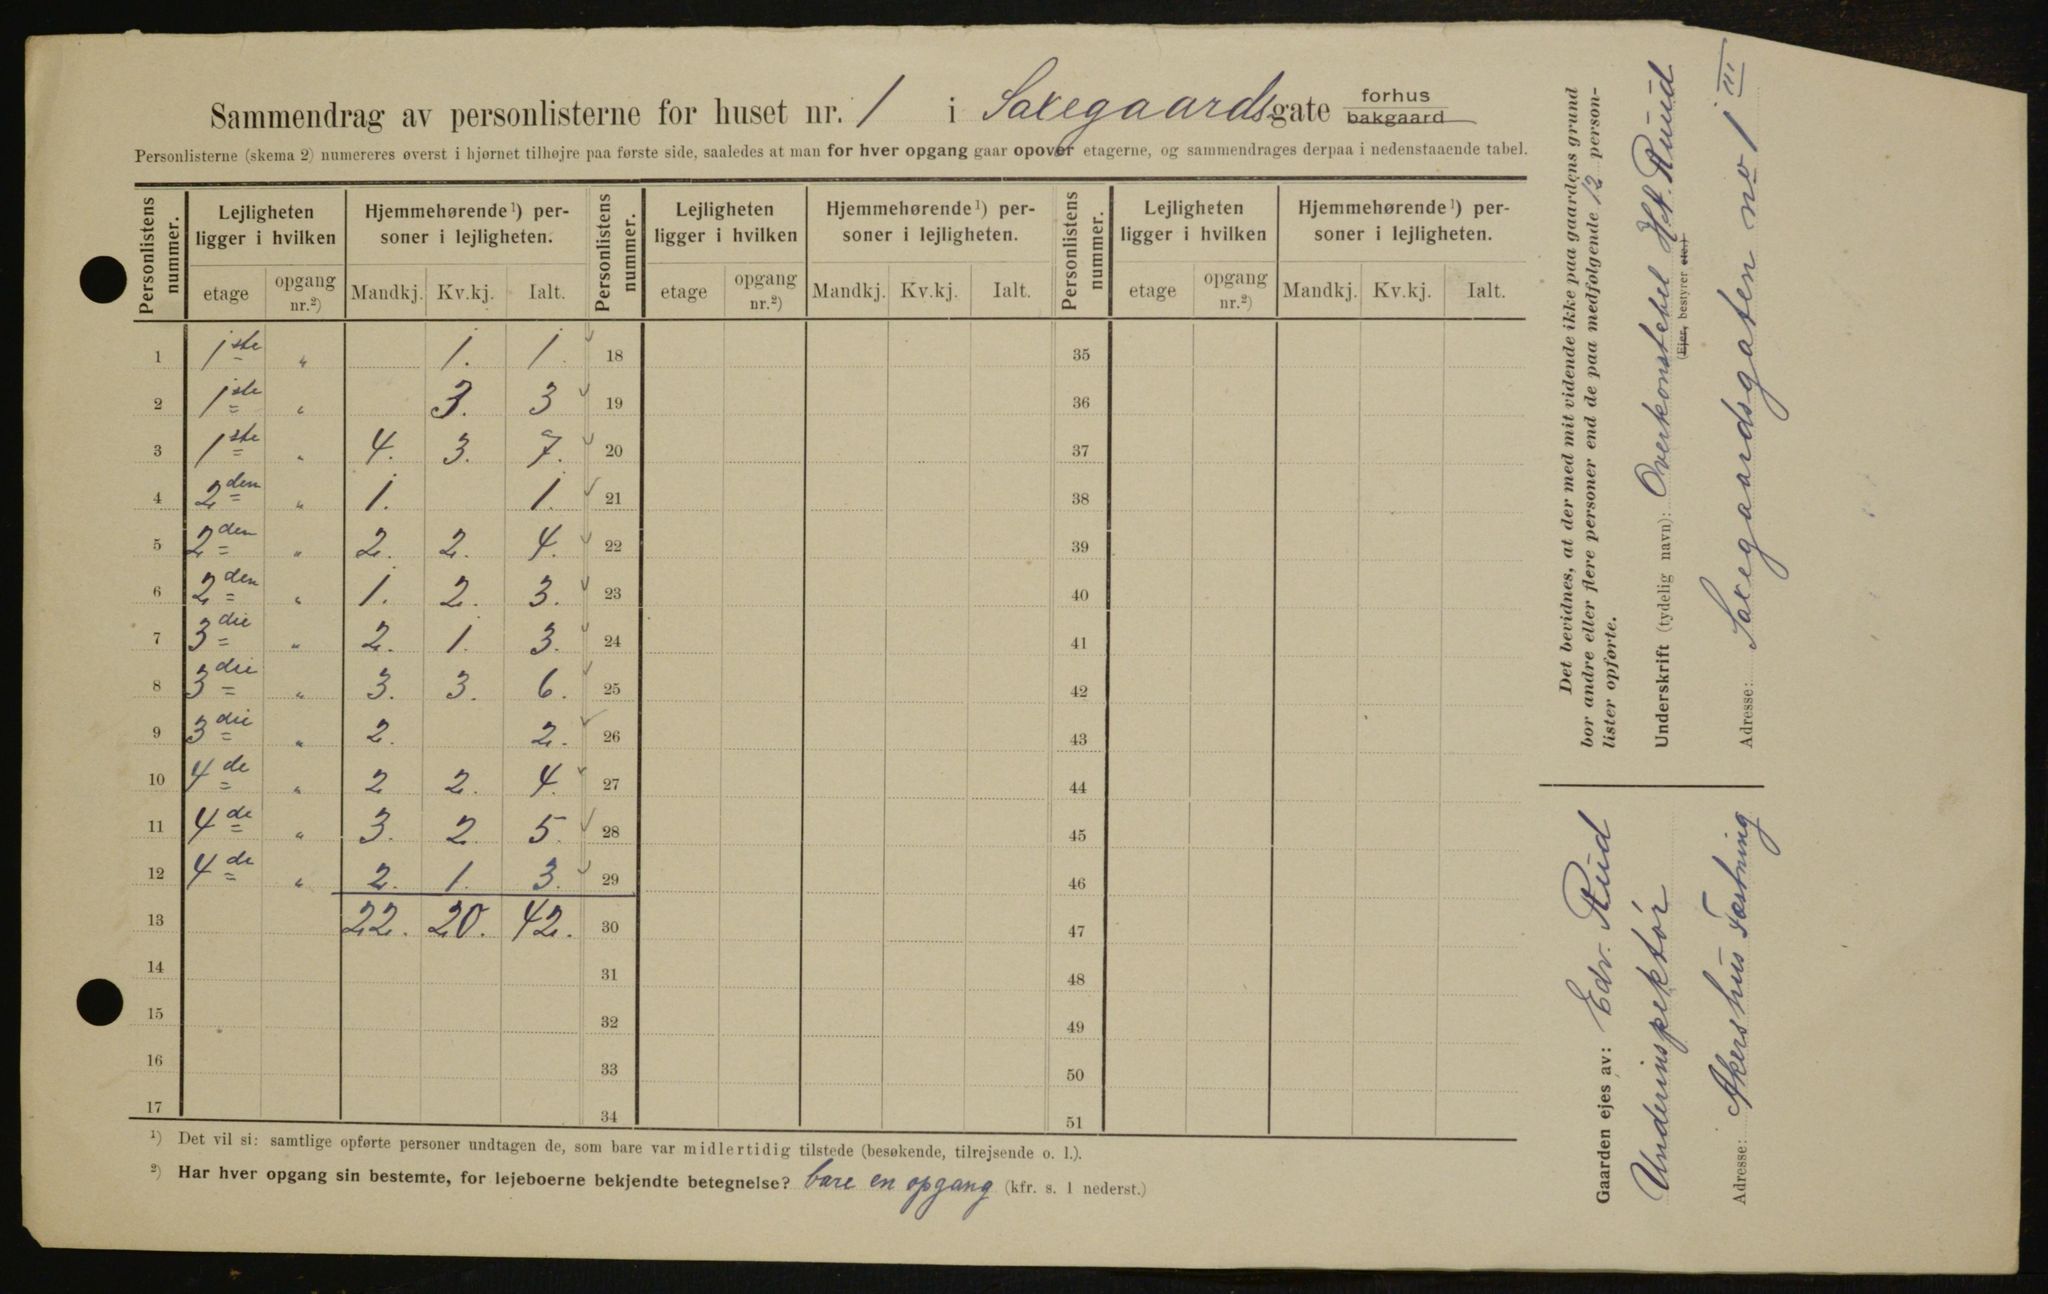 Sammendrag av personlisterne for huset nr. 1 i Saxegaardsgate forhus bakgaard
Personlisterne (skema 2) numereres øverst i hjørnet tilhøjre paa første side, saaledes at man for hver opgang gaar opover etagerne, og sammendrages derpaa i nedenstaaende tabel.
Personlistens nummer. Lejligheten ligger i hvilken Hjemmehørende ¹) personer i lejligheten. Personlistens nummer. Lejligheten ligger i hvilken Hjemmehørende ¹) personer i lejligheten. Personlistens nummer. Lejligheten ligger i hvilken Hjemmehørende ¹) personer i lejligheten.
etage opgang nr.²) Mandkj. Kv.kj. Ialt. etage opgang nr.²) Mandkj. Kv.kj. Ialt. etage opgang nr.²) Mandkj. Kv.kj. Ialt.
1 1ste " 1. 1. 18 35
2 1ste " 3. 3 19 36
3 1ste " 4. 3. 7. 20 37
4 2den " 1. 1. 21 38
5 2den " 2. 2. 4. 22 39
6 2den " 1. 2. 3. 23 40
7 3die " 2. 1. 3. 24 41
8 3die " 3. 3. 6. 25 42
9 3die " 2. 2. 26 43
10 4de " 2 2. 4. 27 44
11 4de " 3. 2. 5. 28 45
12 4de " 2. 1. 3. 29 46
13 22. 20. 42. 30 47
14 31 48
15 32 49
16 33 50
17 34 51
¹) Det vil si: samtlige opførte personer undtagen de, som bare var midlertidig tilstede (besøkende, tilrejsende o. l.).
²) Har hver opgang sin bestemte, for lejeboerne bekjendte betegnelse? bare en opgang (kfr. s. 1 nederst.)
Det bevidnes, at der med mit vidende ikke paa gaardens grund
bor andre eller flere personer end de paa medfølgende 12 person-
lister opførte.
Underskrift (tydelig navn): Overkonstabel Hct. Ruud
(Ejer, bestyrer etc.)
Adresse: Saxegaardsgaten no 1 III
Gaarden ejes av: Edv. Rud
Underinspektør
Adresse: Akershus Fæstning